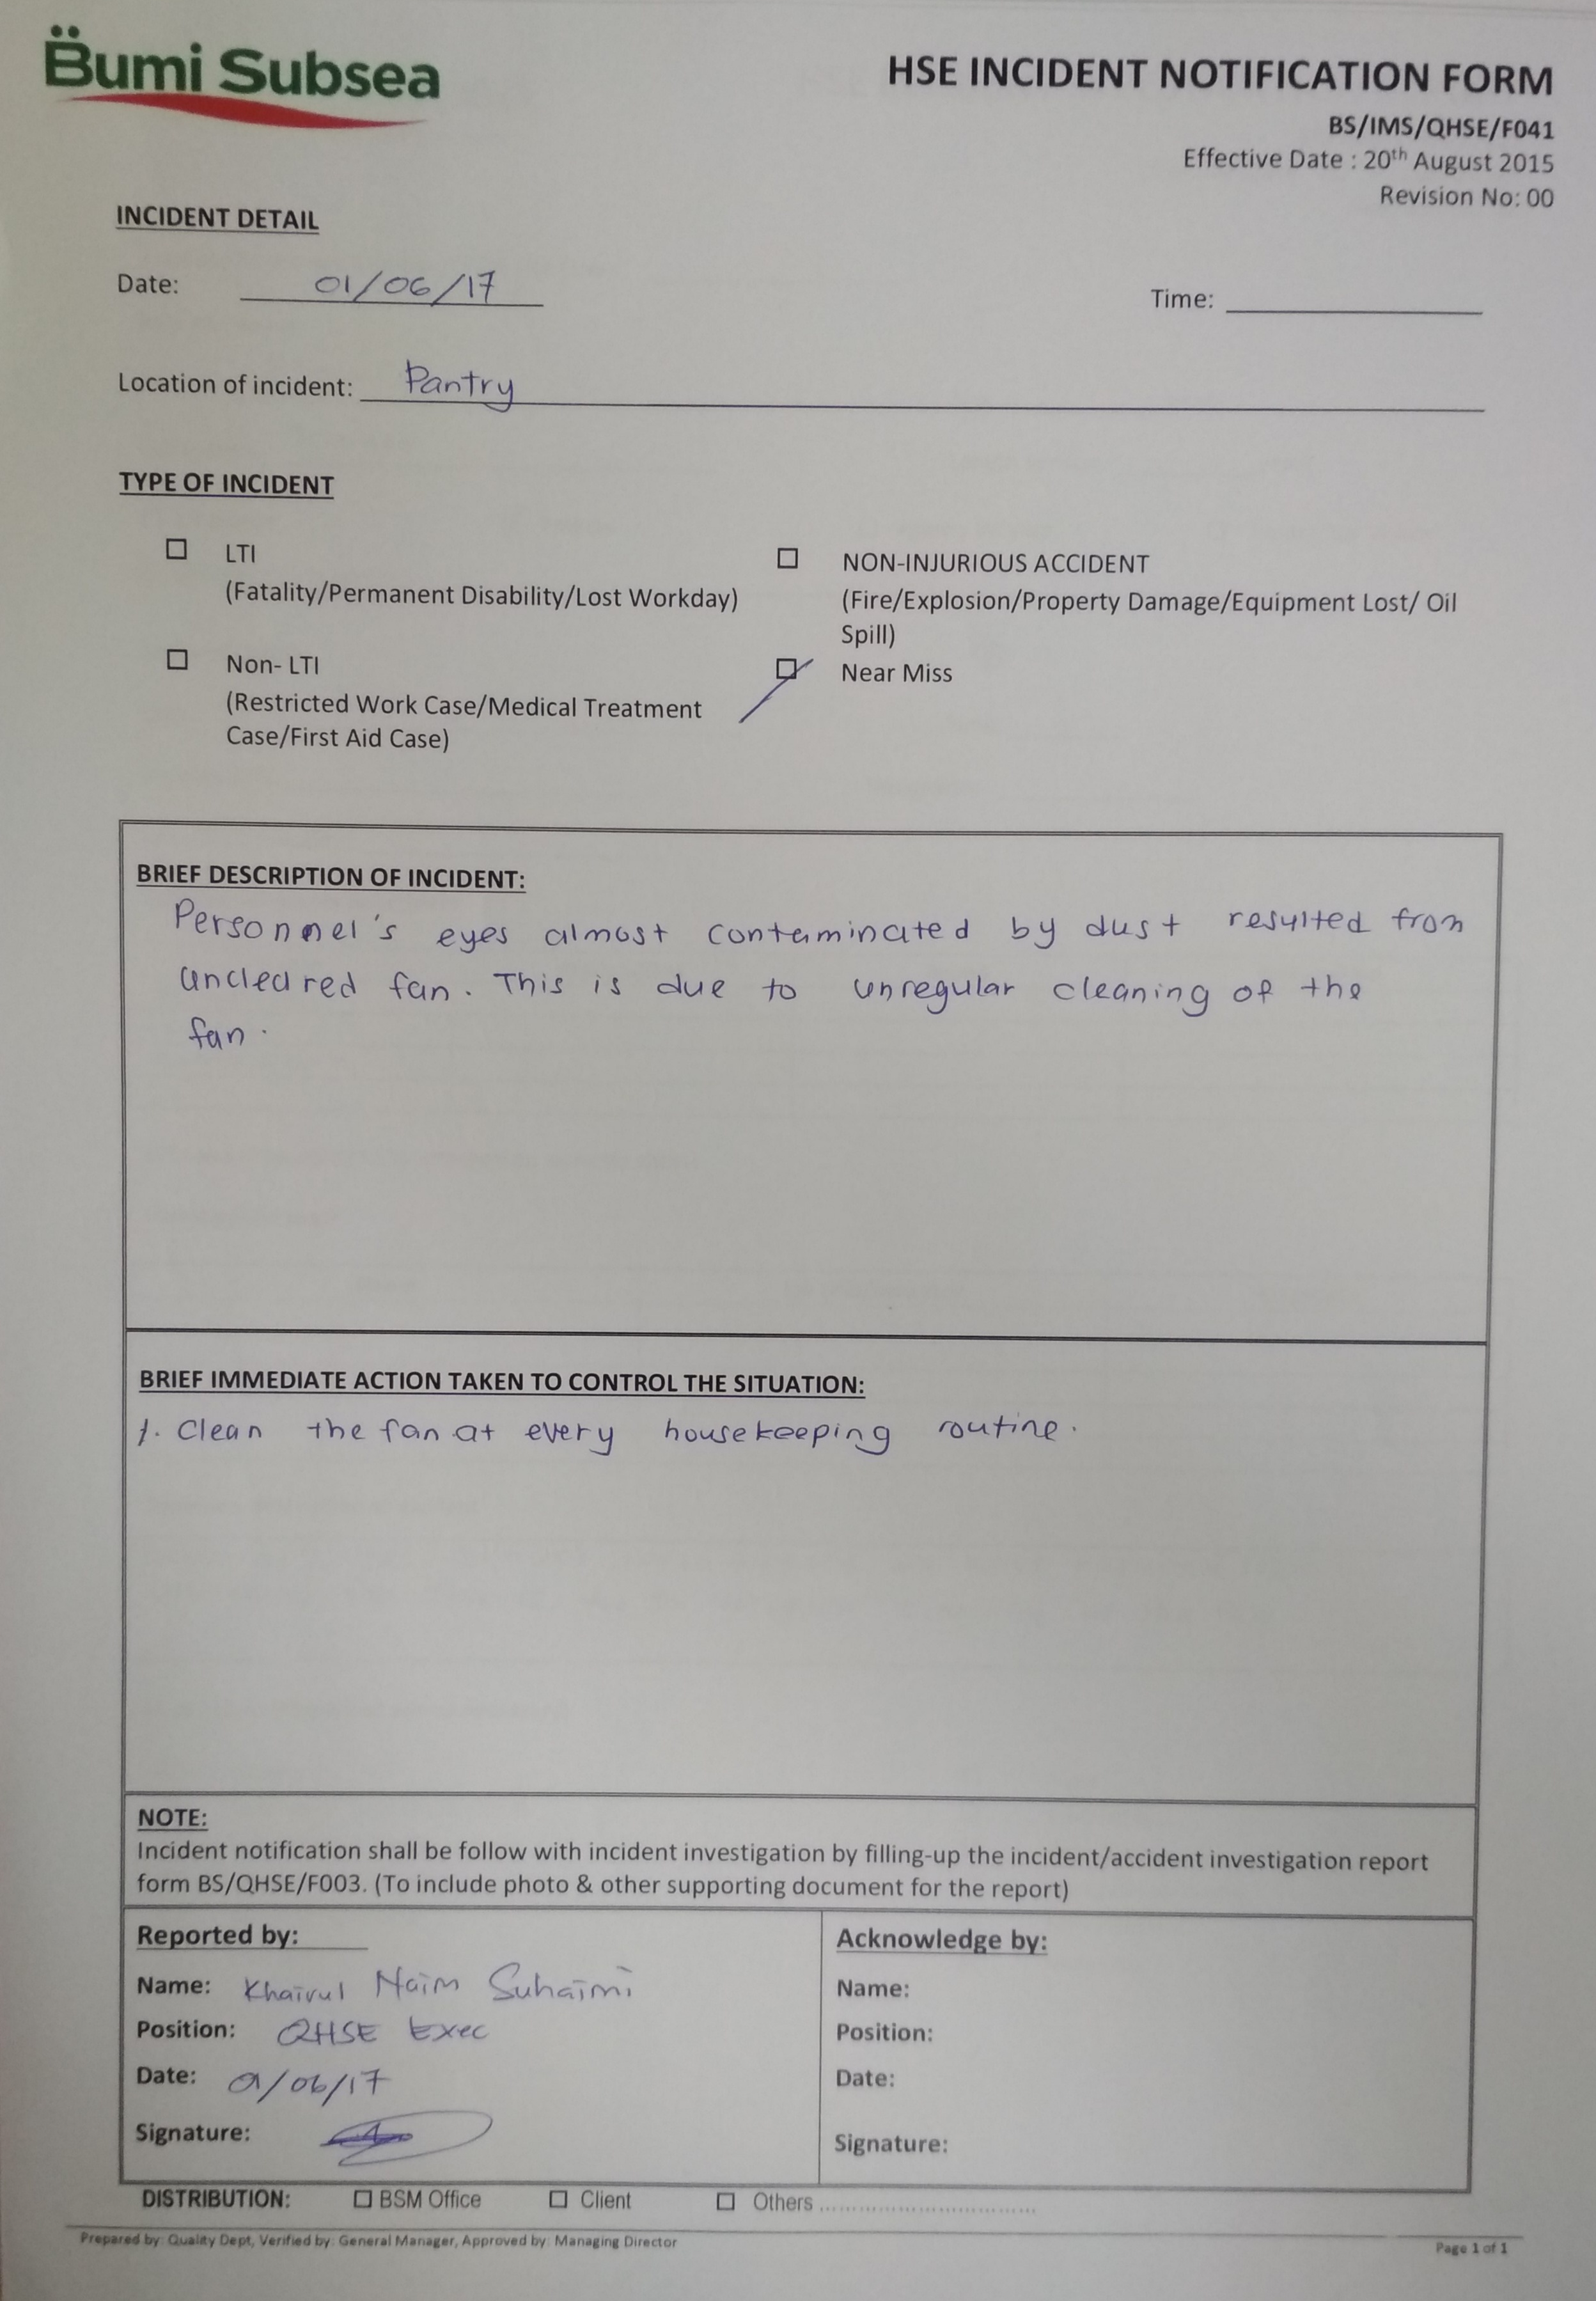 Bumi Subsea
HSE INCIDENT NOTIFICATION FORM
BS/IMS/QHSE/F041
Effective Date : 20th August 2015
Revision No: 00
INCIDENT DETAIL
Date: 01/06/17
Time:
Location of incident: Pantry
TYPE OF INCIDENT
LTI
(Fatality/Permanent Disability/Lost Workday)
NON-INJURIOUS ACCIDENT
(Fire/Explosion/Property Damage/Equipment Lost/ Oil
Spill)
Non- LTI
(Restricted Work Case/Medical Treatment
Case/First Aid Case)
Near Miss
BRIEF DESCRIPTION OF INCIDENT:
Personnel's eyes almost contaminated by dust resulted from
uncleared fan. This is due to unregular cleaning of the
fan.
BRIEF IMMEDIATE ACTION TAKEN TO CONTROL THE SITUATION:
1. Clean the fan at every housekeeping routine.
NOTE:
Incident notification shall be follow with incident investigation by filling-up the incident/accident investigation report
form BS/QHSE/F003. (To include photo & other supporting document for the report)
Reported by:
Name: Khairul Naim Suhaimi
Position: QHSE Exec
Date: 01/06/17
Signature:
Acknowledge by:
Name:
Position:
Date:
Signature:
DISTRIBUTION: BSM Office Client Others ....................................
Prepared by: Quality Dept, Verified by: General Manager, Approved by: Managing Director
Page 1 of 1